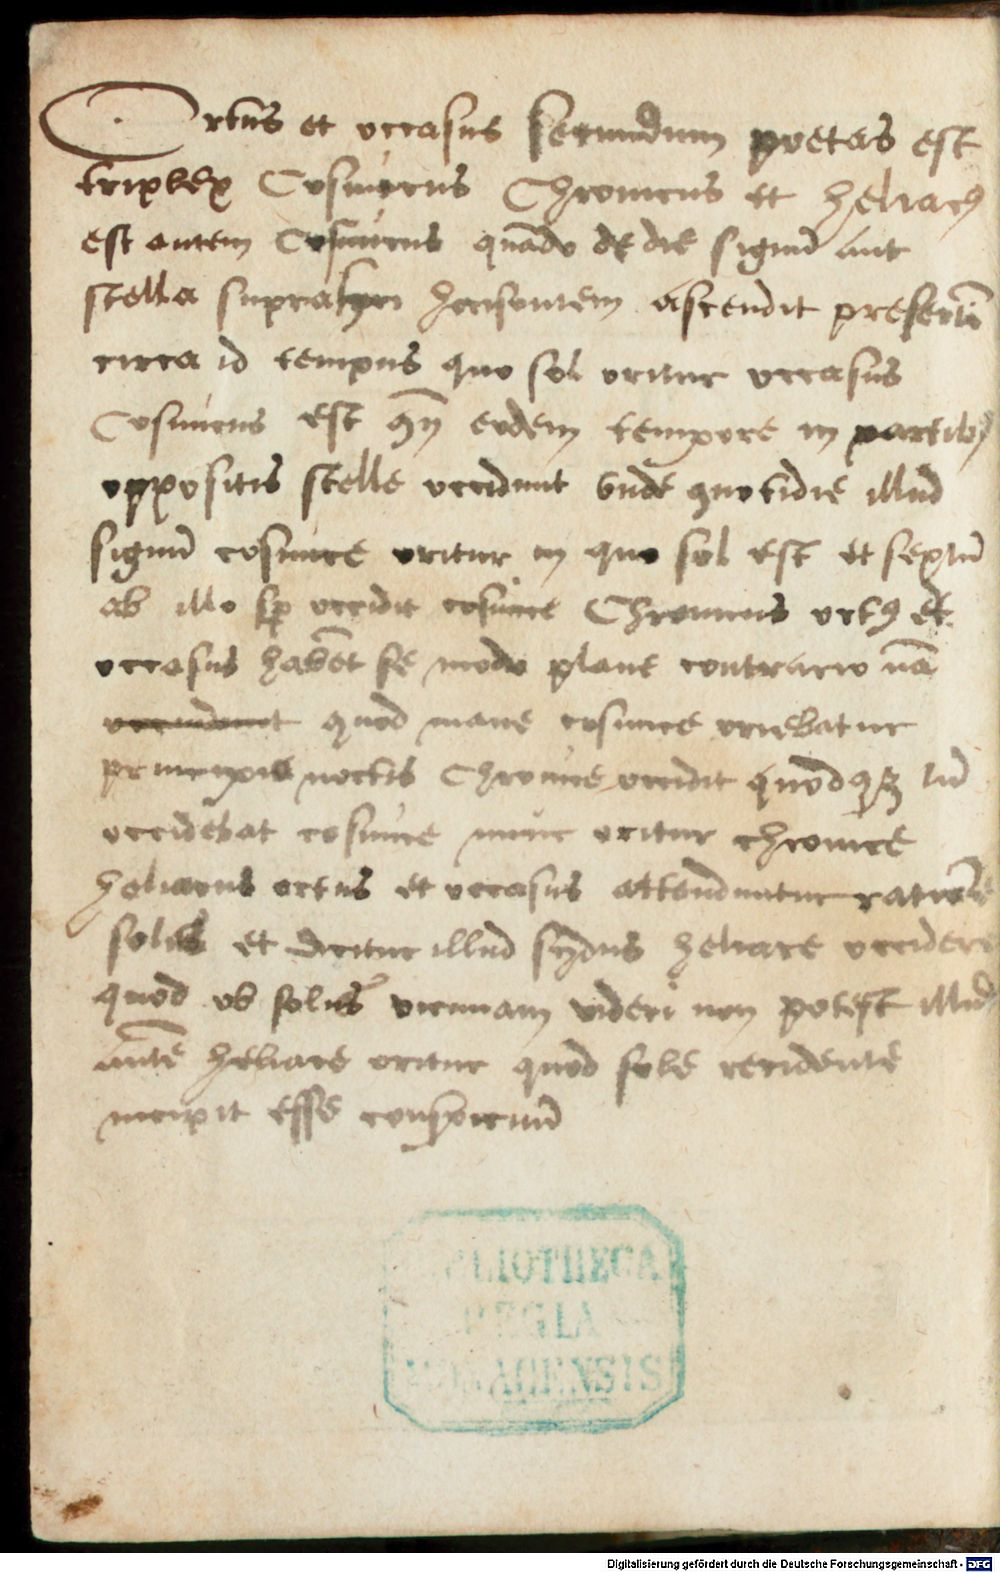 Ortus et occasus secundum poetas est
triplex Cosmicus Chronicus et heliacq
est autem Cosmicus quādo de die signū aut
stella supra horisontem ascendit presertī
circa id tempus quo sol oritur occasus
Cosmicus est qn̄ eodem tempore in partibꝫ
oppositis stelle occidunt Unde quotidie illud
signū cosmice oritur in quo sol est et septū
ab illo sp occidit cosmice Chronicus ortꝰ et
occasus habēt se modo plane contrario nā
quod mane cosmice oriebatur
principio noctis Chronice occidit quodqꝫ tū
occidebat cosmice nunc oritur chronice
heliacus ortus et occasus attenduntur ratiōe
solis et dicitur illud sydus heliace occidere
quod ob solis vicinam videri non potest illud
autē heliace oritur quod sole recidente
incipit esse conspicuū
BIBLIOTHECA
REGIA
MONACENSIS
Digitalisierung gefördert durch die Deutsche Forschungsgemeinschaft - DFG